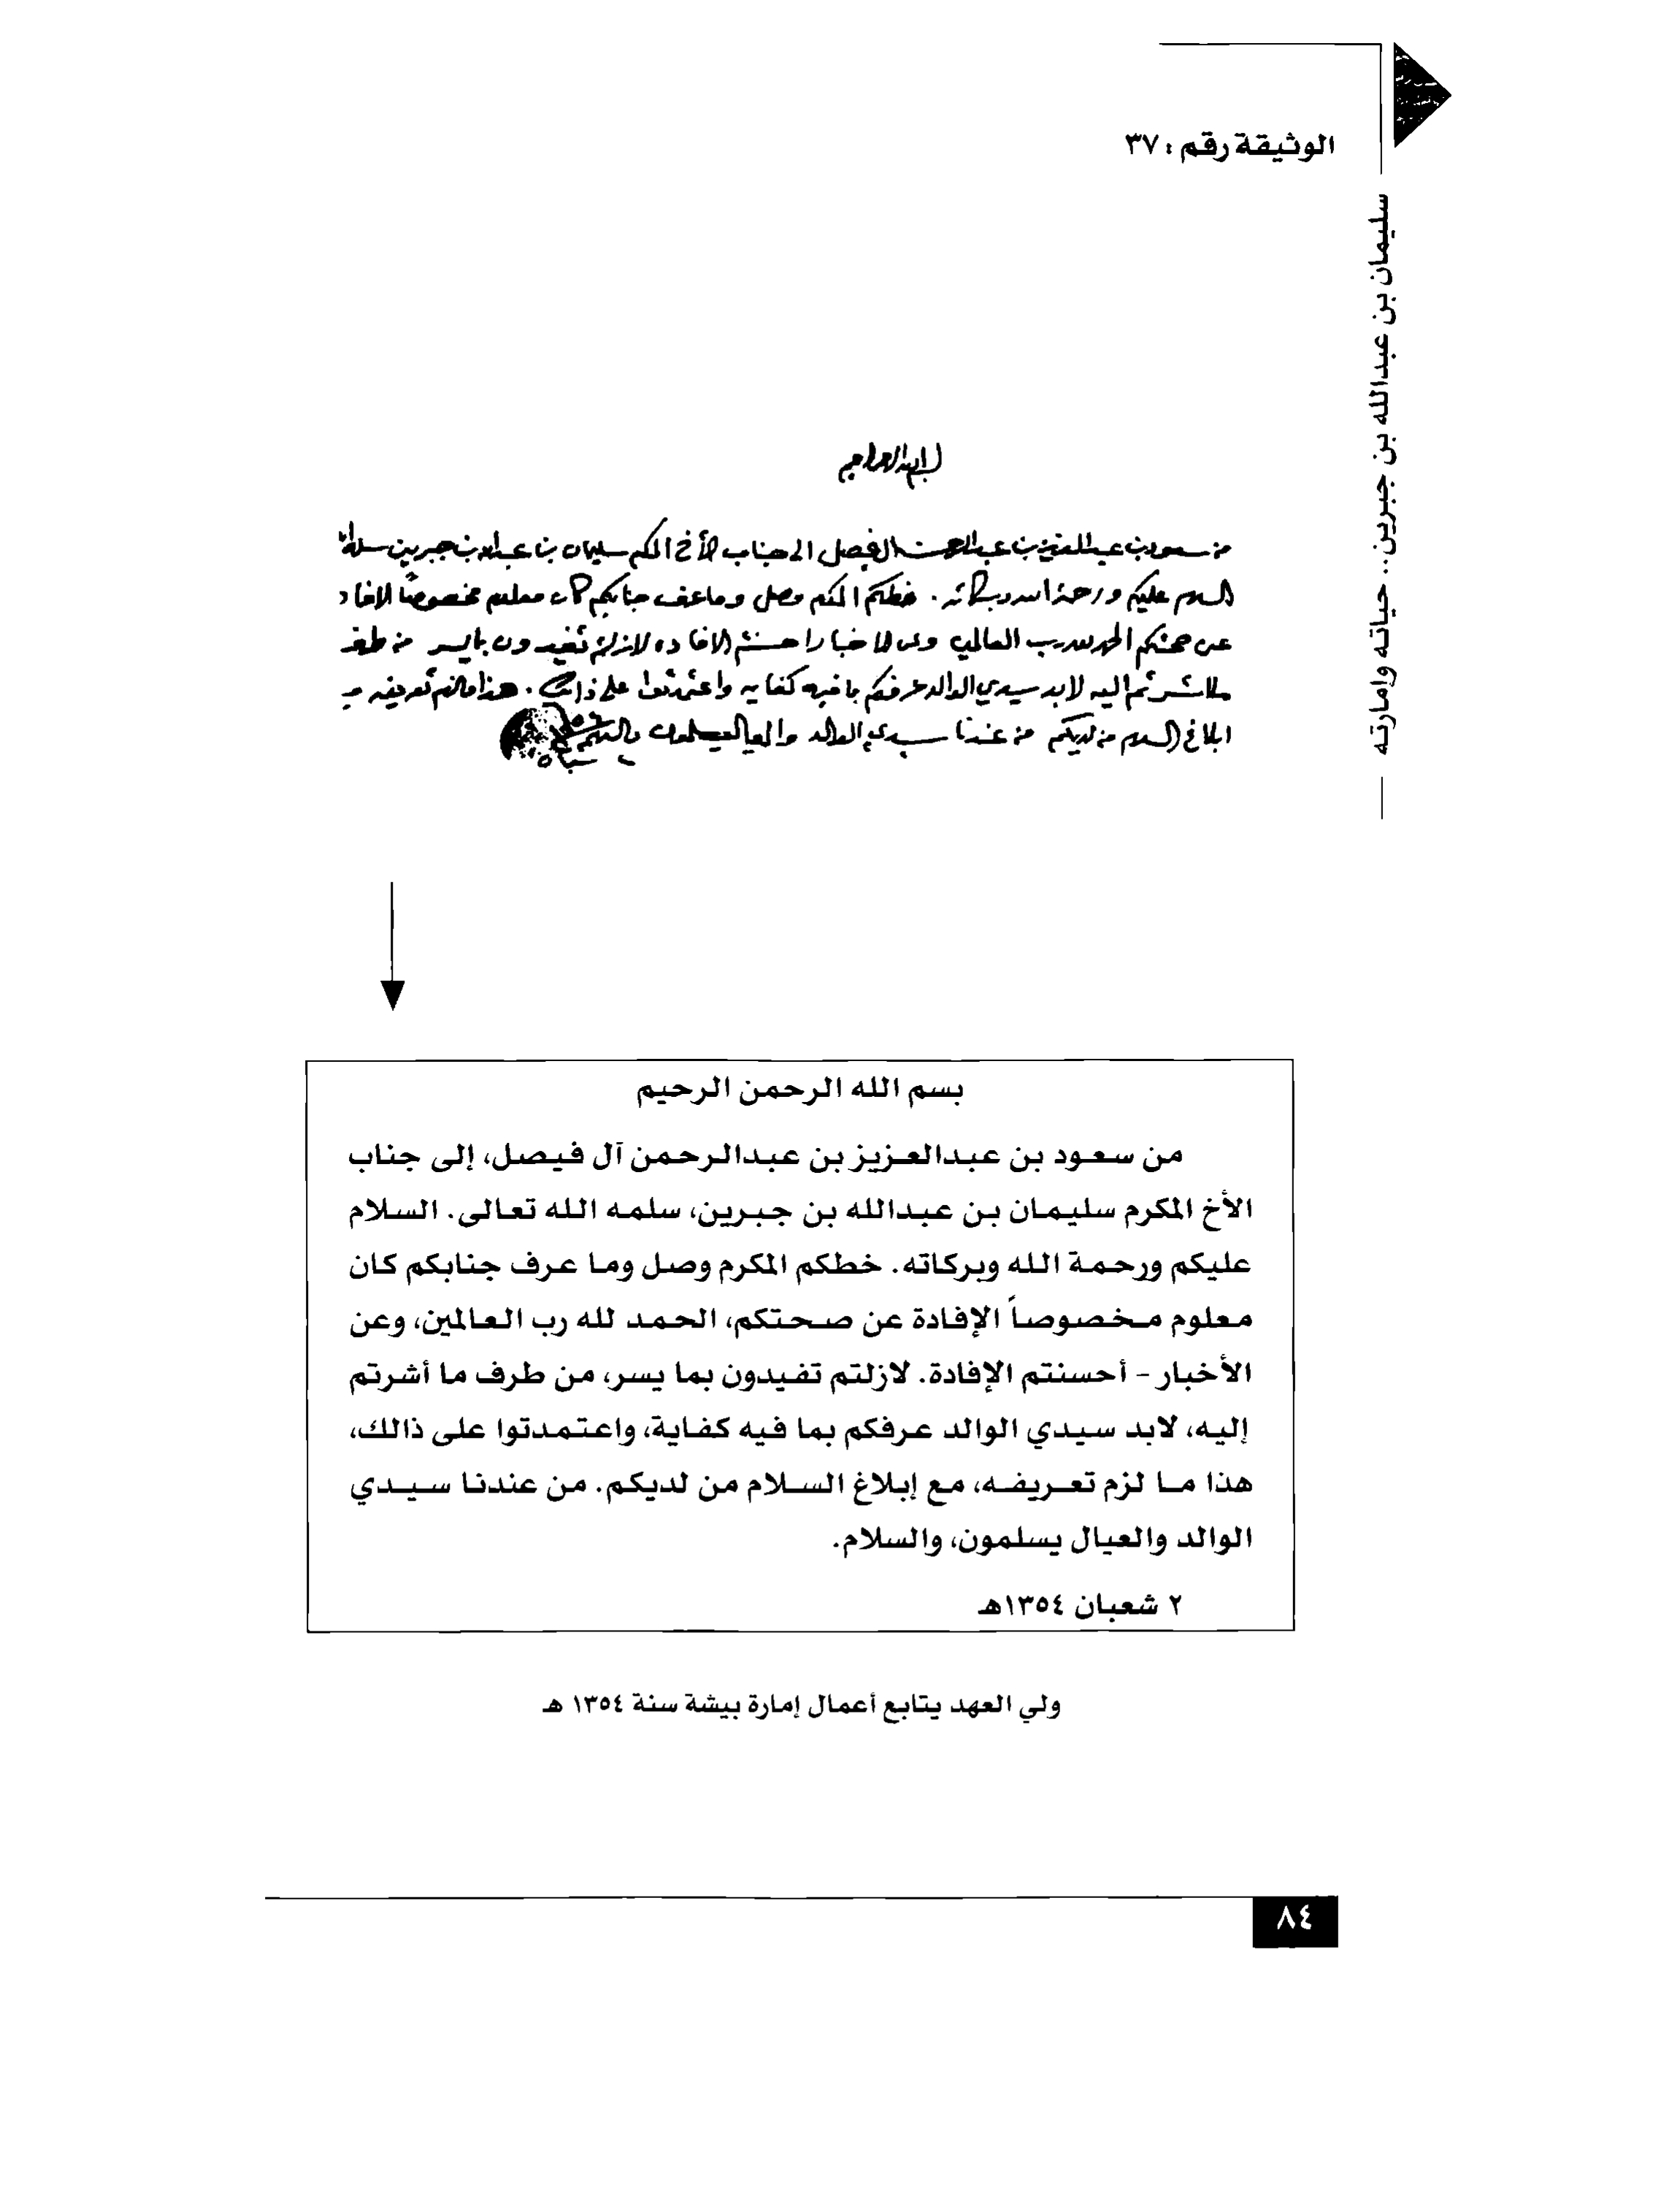 الوثيقة رقم : ٣٧
سليمان بن عبدالله بن جبرين.. حياته وإمارته
من سعود بن عبد العزيز بن عبد الرحمن الفيصل الى جناب الأخ المكرم سليمان بن عبد الله بن جبرين سلمه
السلام عليكم ورحمة الله وبركاته . خطكم المكرم وصل وما عرف جنابكم كان معلوم مخصوصاً الافاد
عن صحتكم الحمد لله رب العالمين وعن الاخبار احسنتم الافاده لازلتم تفيدون بما يسر من طرف
ما اشرتم اليه لابد سيدي الوالد عرفكم بما فيه كفايه واعتمدتوا على ذالك . هذا ما لزم تعريفه مع
ابلاغ السلام من لديكم من عندنا سيدي الوالد والعيال يسلمون والسلام
بسم الله الرحمن الرحيم
من سعود بن عبدالعزيز بن عبدالرحمن آل فيصل، إلى جناب
الأخ المكرم سليمان بن عبدالله بن جبرين، سلمه الله تعالى. السلام
عليكم ورحمة الله وبركاته. خطكم المكرم وصل وما عرف جنابكم كان
معلوم مخصوصاً الإفادة عن صحتكم، الحمد لله رب العالمين، وعن
الأخبار - أحسنتم الإفادة. لازلتم تفيدون بما يسر، من طرف ما أشرتم
إليه، لابد سيدي الوالد عرفكم بما فيه كفاية، واعتمدتوا على ذالك،
هذا ما لزم تعريفه، مع إبلاغ السلام من لديكم. من عندنا سيدي
الوالد والعيال يسلمون، والسلام.
٢ شعبان ١٣٥٤هـ
ولي العهد يتابع أعمال إمارة بيشة سنة ١٣٥٤ هـ
٨٤